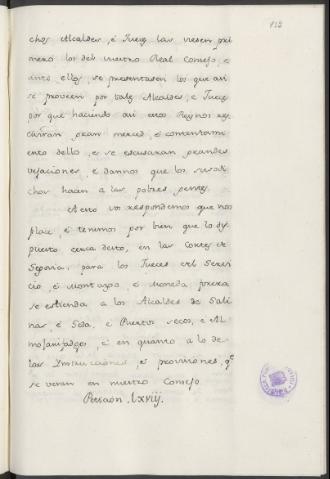 chos Alcaldes, é Jueces las viesen pri
mero los del vuestro Real Consejo, é
ante ellos, se presentasen los que asi
se proveen por tales Alcaldes, é Jueces
por que haciendo asi estos Reynos res
cibiran gran merced, é contentami
ento dello, é se escusaran grandes
vejaciones, é dannos que los susodi
chos hacen a las pobres gentes.
A esto vos respondemos que nos
place, é tenemos por bien, que lo dis
puesto cerca desto, en las Cortes de
Segovia, para los Jueces del Servi
cio, é Montazgo, é Moneda forera
se estienda a los Alcaldes de Sali
nas, é Seda, é Puertos secos, é Al
mojarifazgos, é en quanto a lo de
las Instrucciones, é provisiones, qe
se veran en nuestro Consejo
Peticion, lxviij.